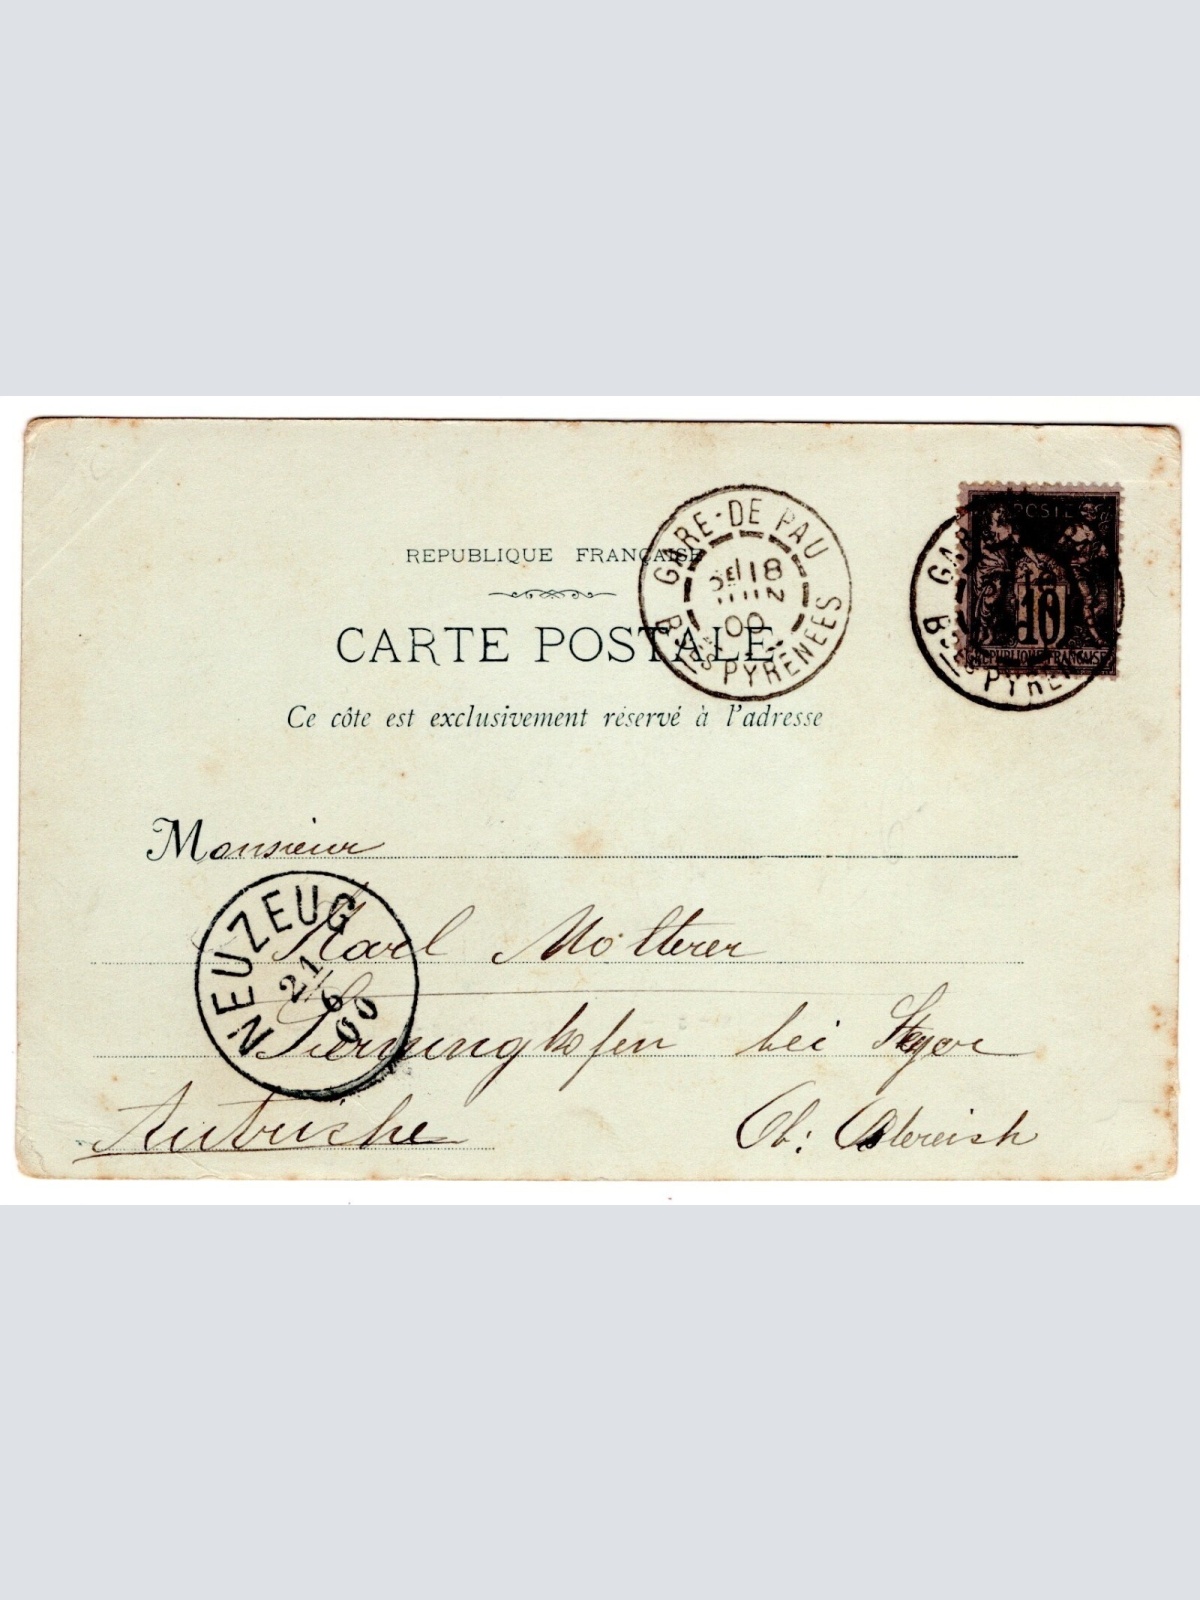 REPUBLIQUE FRANÇAISE
CARTE POSTALE
Ce côte est exclusivement réservé à l'adresse
GARE-DE PAU
18
JUIN
00
Bses PYRENEES
POSTES
10
REPUBLIQUE FRANÇAISE
GAR
Bses PYREN
Monsieur
Karl Molterer
bei Steyer
Autriche
Ob: Östereich
NEUZEUG
21/6
00